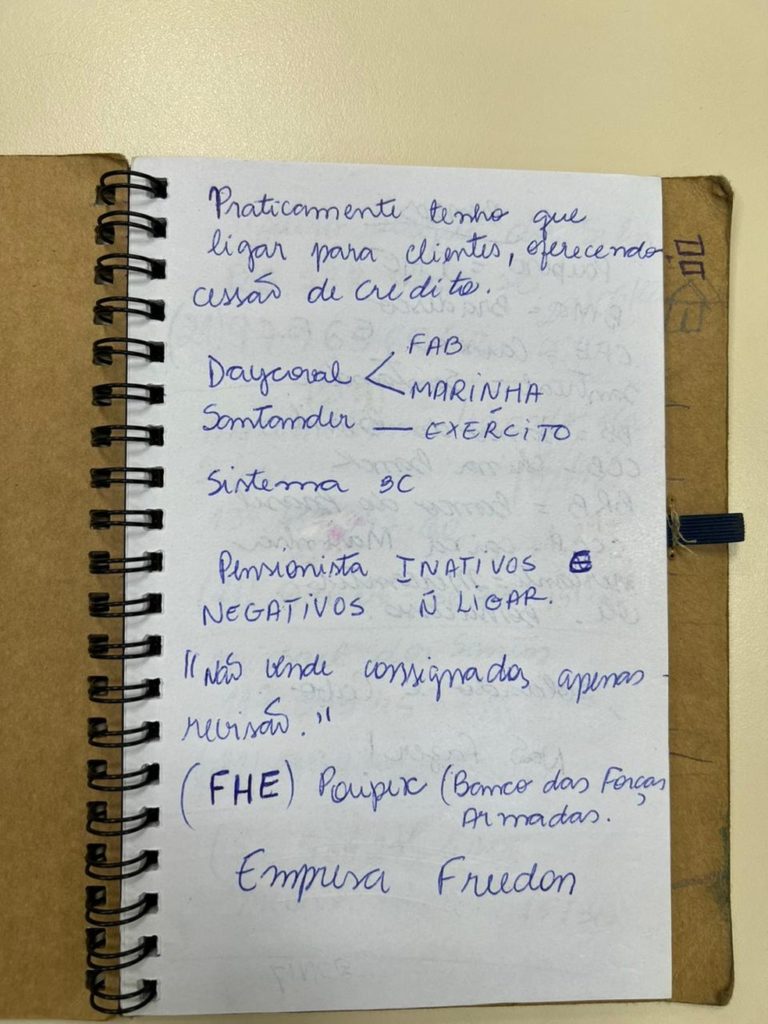 Praticamente tenho que
ligar para clientes, oferecendo
cessão de crédito.
Daycoval < FAB
MARINHA
Santander — EXÉRCITO
Sistema 3C
Pensionista INATIVOS e
NEGATIVOS Ñ LIGAR.
"Não vende consignados, apenas
revisão."
(FHE) Poupex (Banco das Forças
Armadas.
Empresa Freedon